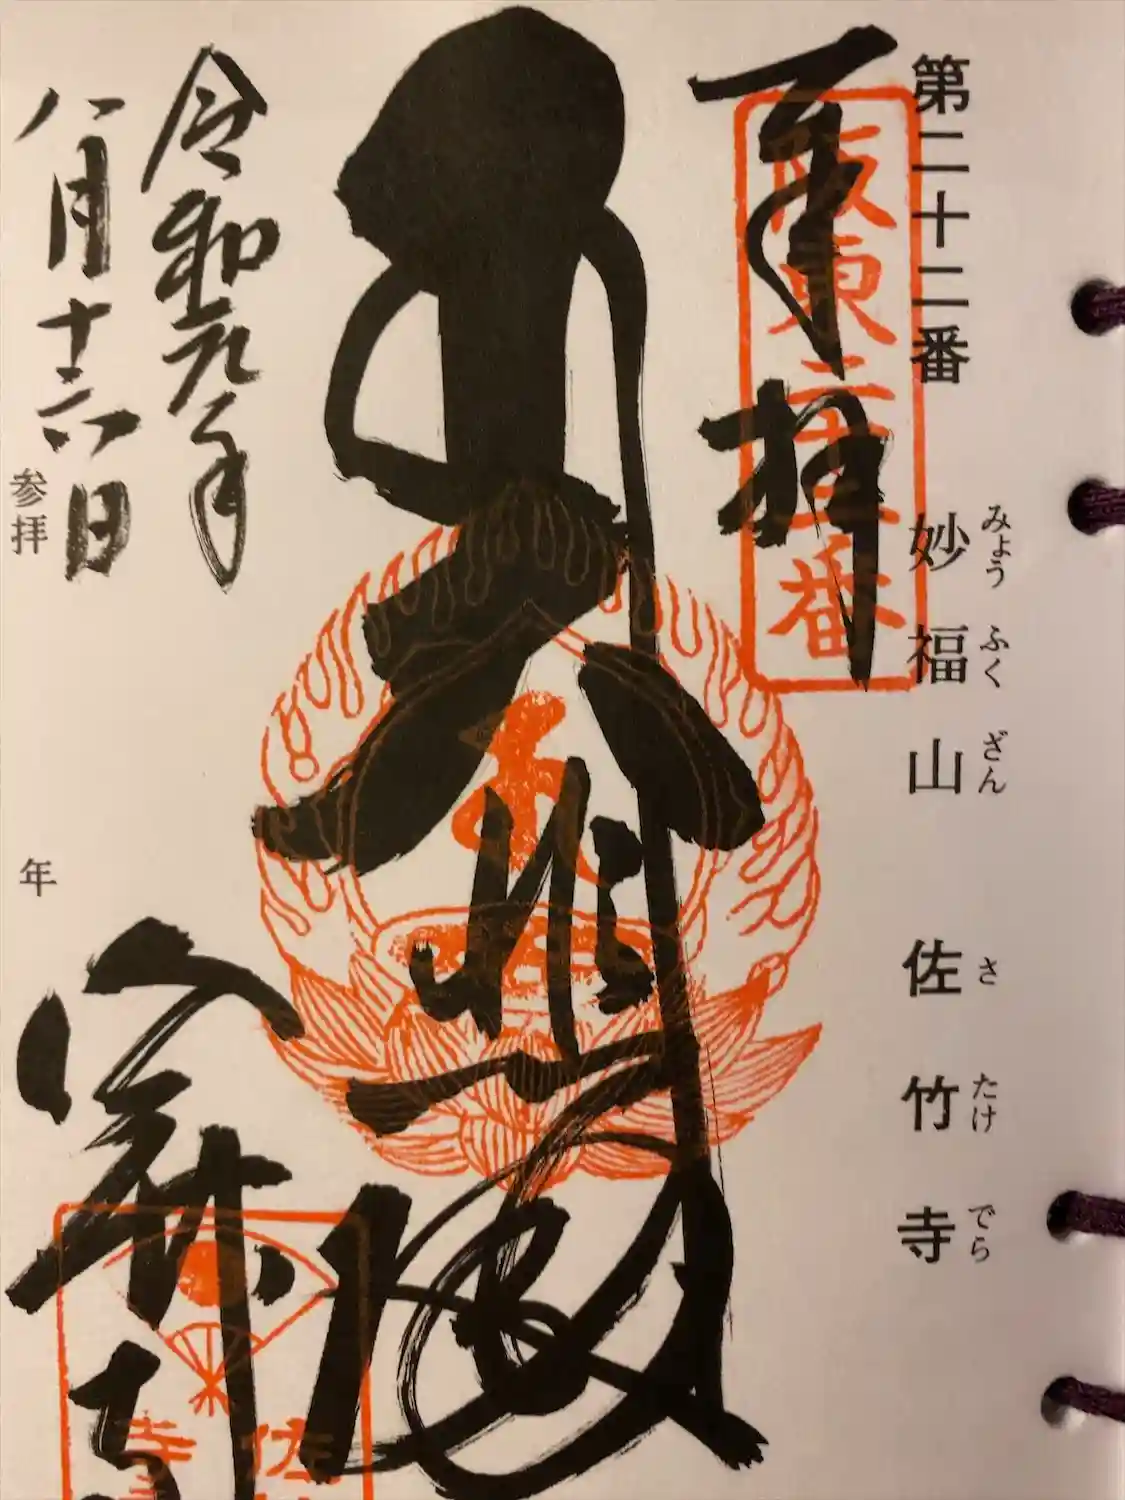 第二十二番 妙福山 佐竹寺
みょう ふく ざん さ たけ でら
奉拝
阪東二十二番
大悲殿
令和元年
八月十六日
参拝
年
佐
寺